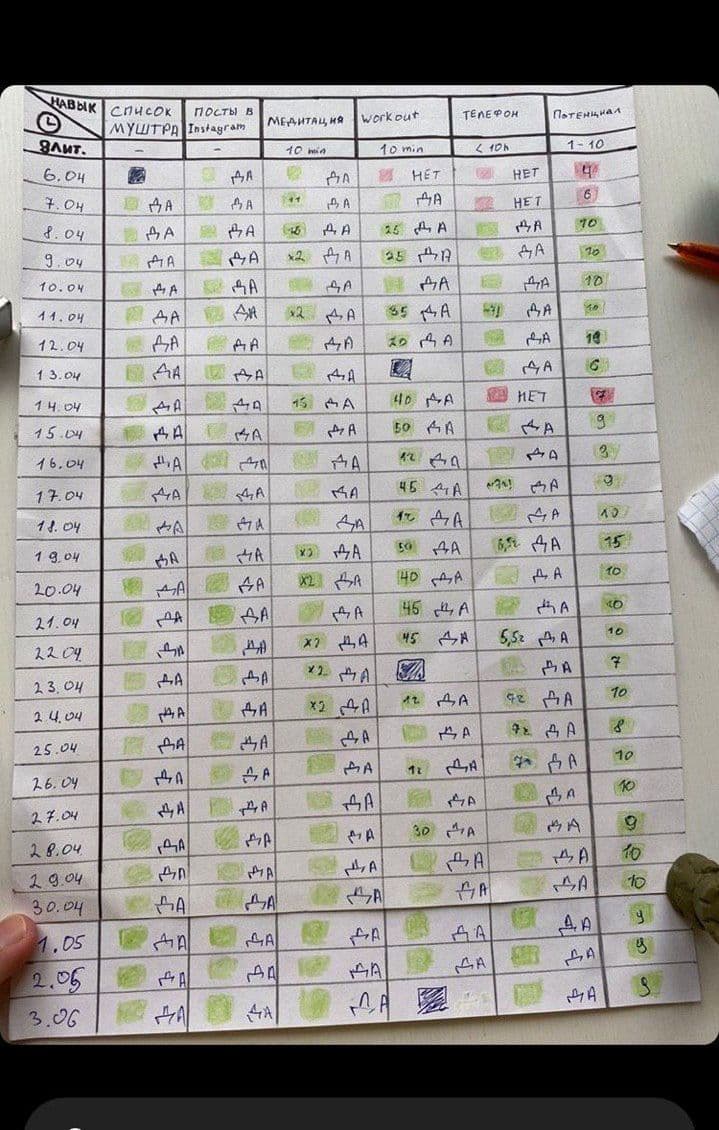 НАВЫК СПИСОК МУШТРА ПОСТЫ В Instagram МЕДИТАЦИЯ Workout ТЕЛЕФОН Потенциал
ДЛИТ. - - 10 min 10 min < 10h 1-10
6.04 ДА ДА НЕТ НЕТ 4
7.04 ДА ДА 11 ДА ДА НЕТ 6
8.04 ДА ДА ДА 25 ДА ДА 10
9.04 ДА ДА x2 ДА 25 ДА ДА 10
10.04 ДА ДА ДА ДА ДА 10
11.04 ДА ДА x2 ДА 35 ДА ДА 10
12.04 ДА ДА ДА 20 ДА ДА
13.04 ДА ДА ДА ДА 6
14.04 ДА ДА 15 ДА 40 ДА НЕТ 7
15.04 ДА ДА ДА 50 ДА ДА 9
16.04 ДА ДА ДА 12 ДА ДА 9
17.04 ДА ДА ДА 45 ДА ДА 9
18.04 ДА ДА ДА 12 ДА ДА 10
19.04 ДА ДА x2 ДА 50 ДА 6,5г ДА 15
20.04 ДА ДА x2 ДА 40 ДА ДА 10
21.04 ДА ДА ДА 45 ДА ДА
22.04 ДА ДА x2 ДА 45 ДА 5,5г ДА 10
23.04 ДА ДА x2 ДА ДА 7
24.04 ДА ДА x2 ДА 12 ДА 7г ДА 10
25.04 ДА ДА ДА ДА 7г ДА 8
26.04 ДА ДА ДА 12 ДА ДА 10
27.04 ДА ДА ДА ДА ДА 10
28.04 ДА ДА ДА 30 ДА ДА 9
29.04 ДА ДА ДА ДА ДА 10
30.04 ДА ДА ДА ДА ДА 10
1.05 ДА ДА ДА ДА ДА 9
2.05 ДА ДА ДА ДА ДА 9
3.06 ДА ДА ДА ДА 9